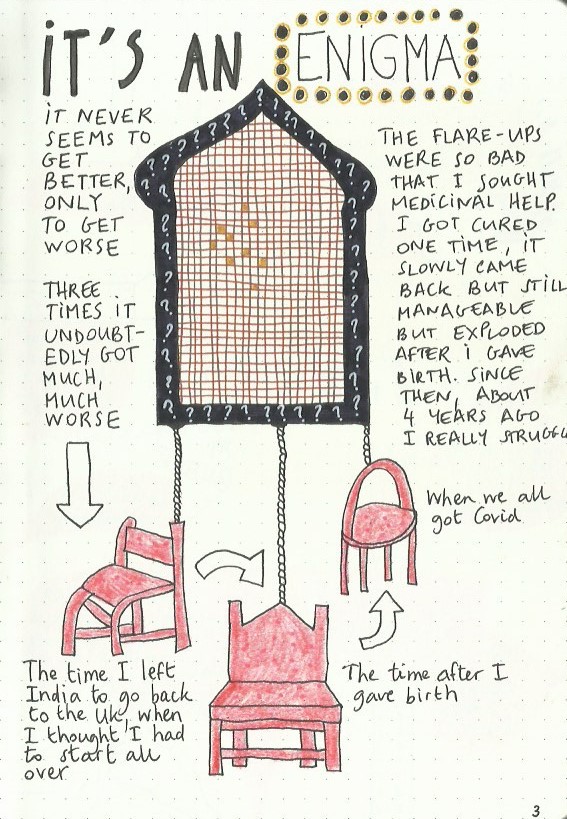 iT'S AN ENiGMA
iT NEVER
SEEMS TO
GET
BETTER,
ONLY
TO GET
WORSE
THREE
TIMES IT
UNDOUBT-
EDLY GOT
MUCH,
MUCH
WORSE
THE FLARE-UPS
WERE SO BAD
THAT I SOUGHT
MEDICINAL HELP.
I GOT CURED
ONE TIME, iT
SLOWLY CAME
BACK BUT STILL
MANAGEABLE
BUT EXPLODED
AFTER i GAVE
BiRTH. SiNCE
THEN, ABOUT
4 YEARS AGO
I REALLY
When we all
got Covid
The time I left
India to go back
to the UK, when
I thought I had
to start all
over
The time after I
gave birth
3